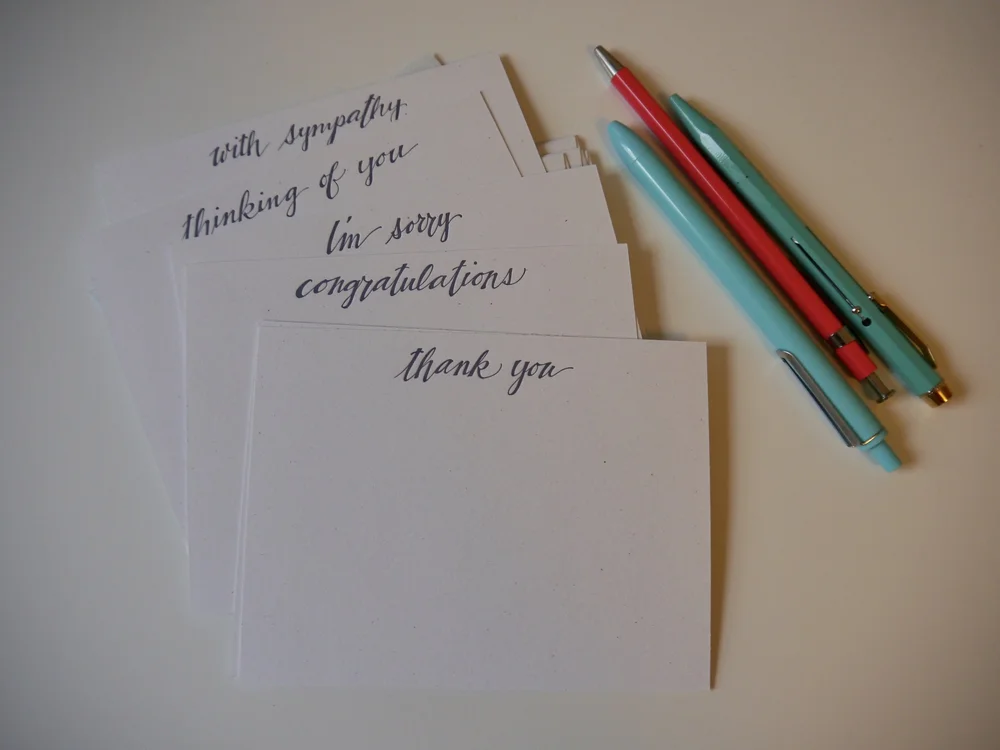 with sympathy
thinking of you
I'm sorry
congratulations
thank you